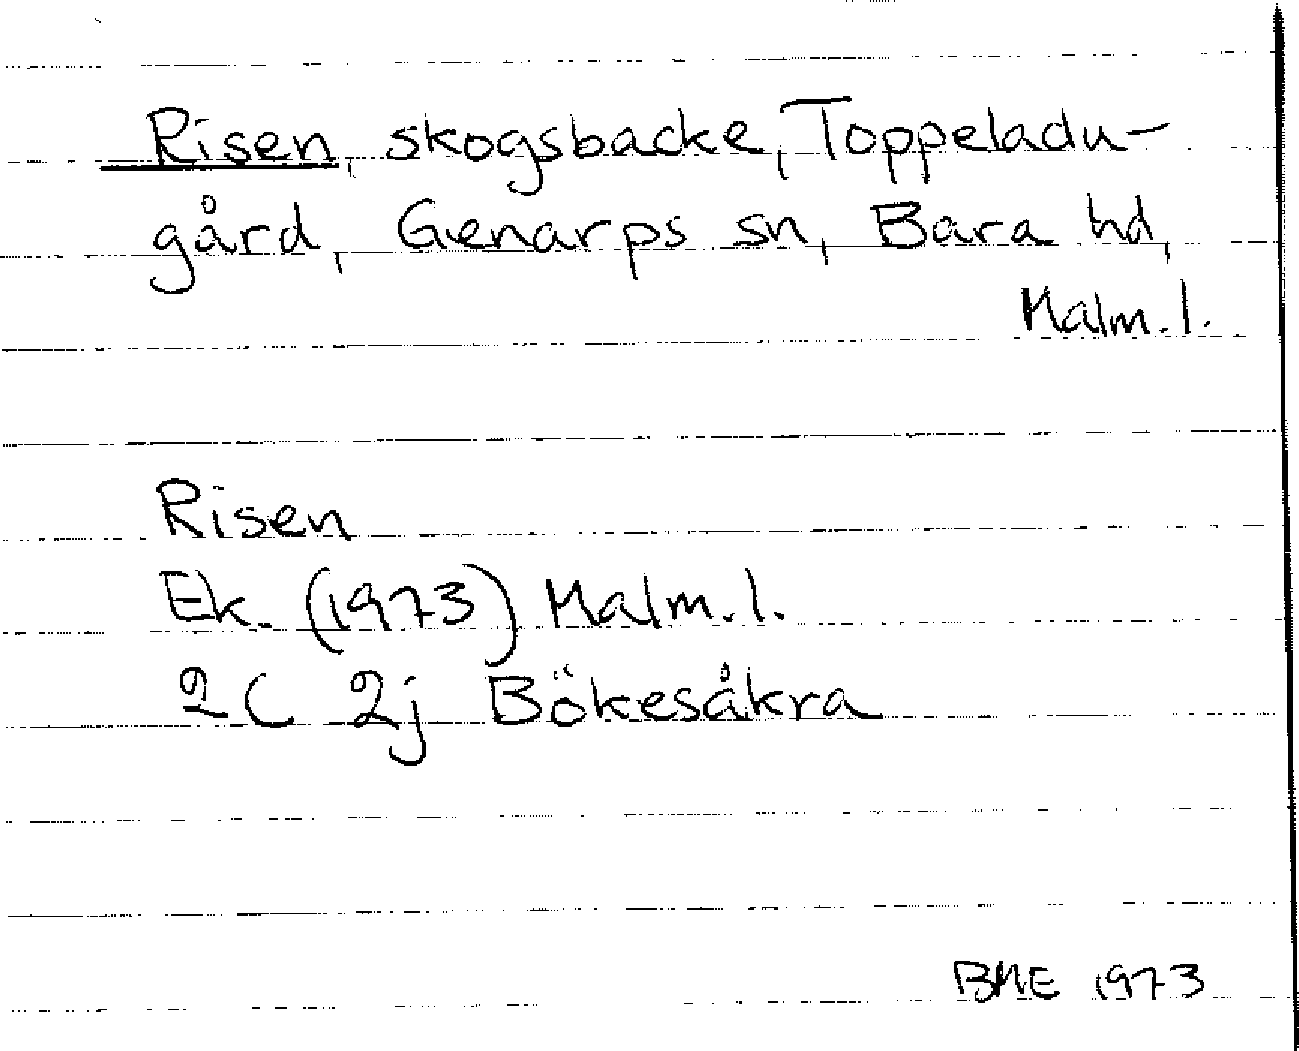 Risen, skogsbacke, Toppeladu-
gård, Genarps sn, Bara hd,
Malm.l.
Risen
Ek. (1973) Malm.l.
2C 2j Bökesåkra
BME 1973